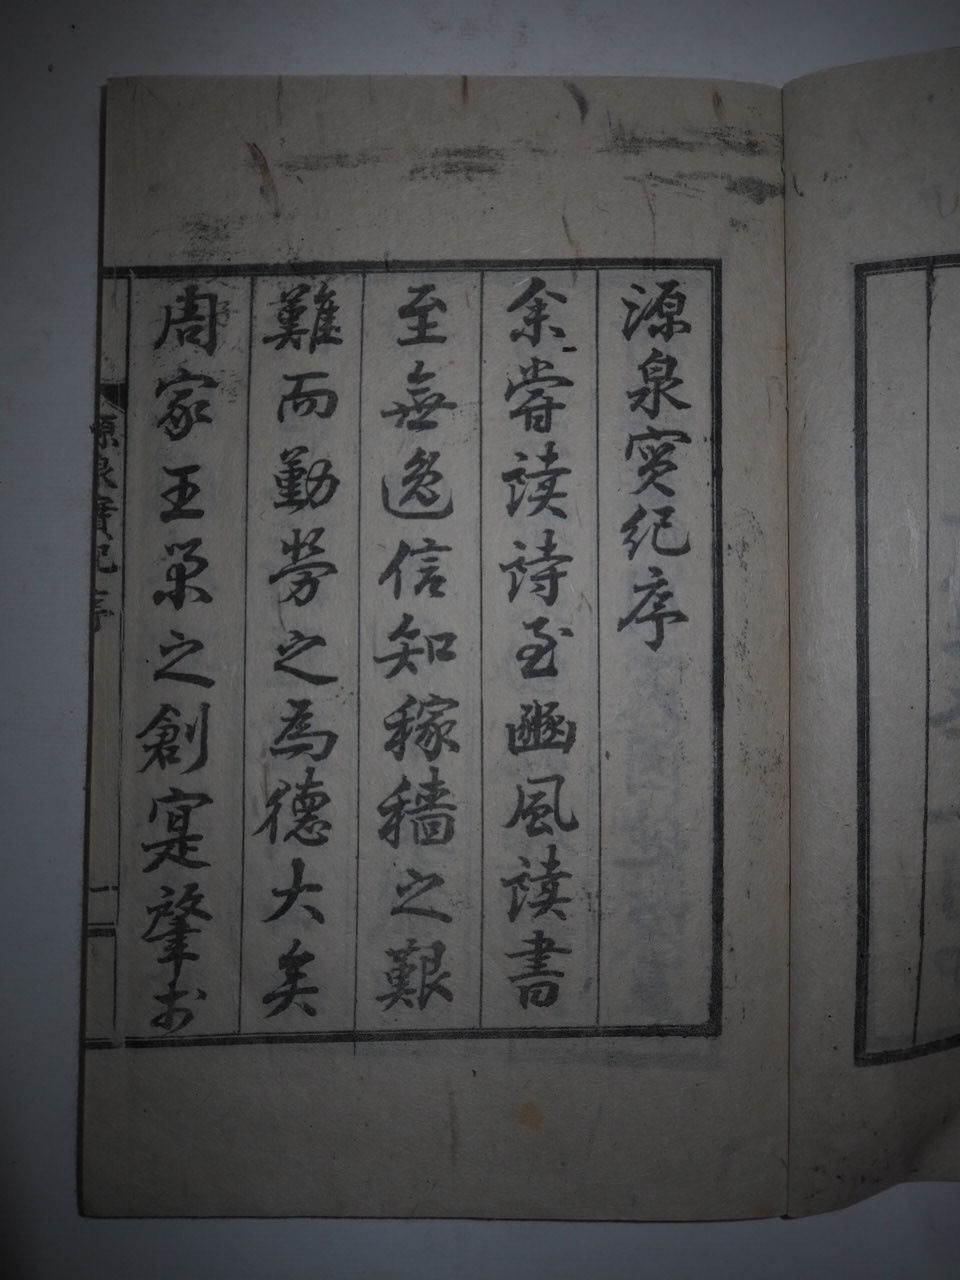 源泉实纪序
余嘗读诗至豳風读書
至無逸信知稼穡之艱
難而勤劳之為德大矣
周家王業之創寔肇於
源泉實紀序
一